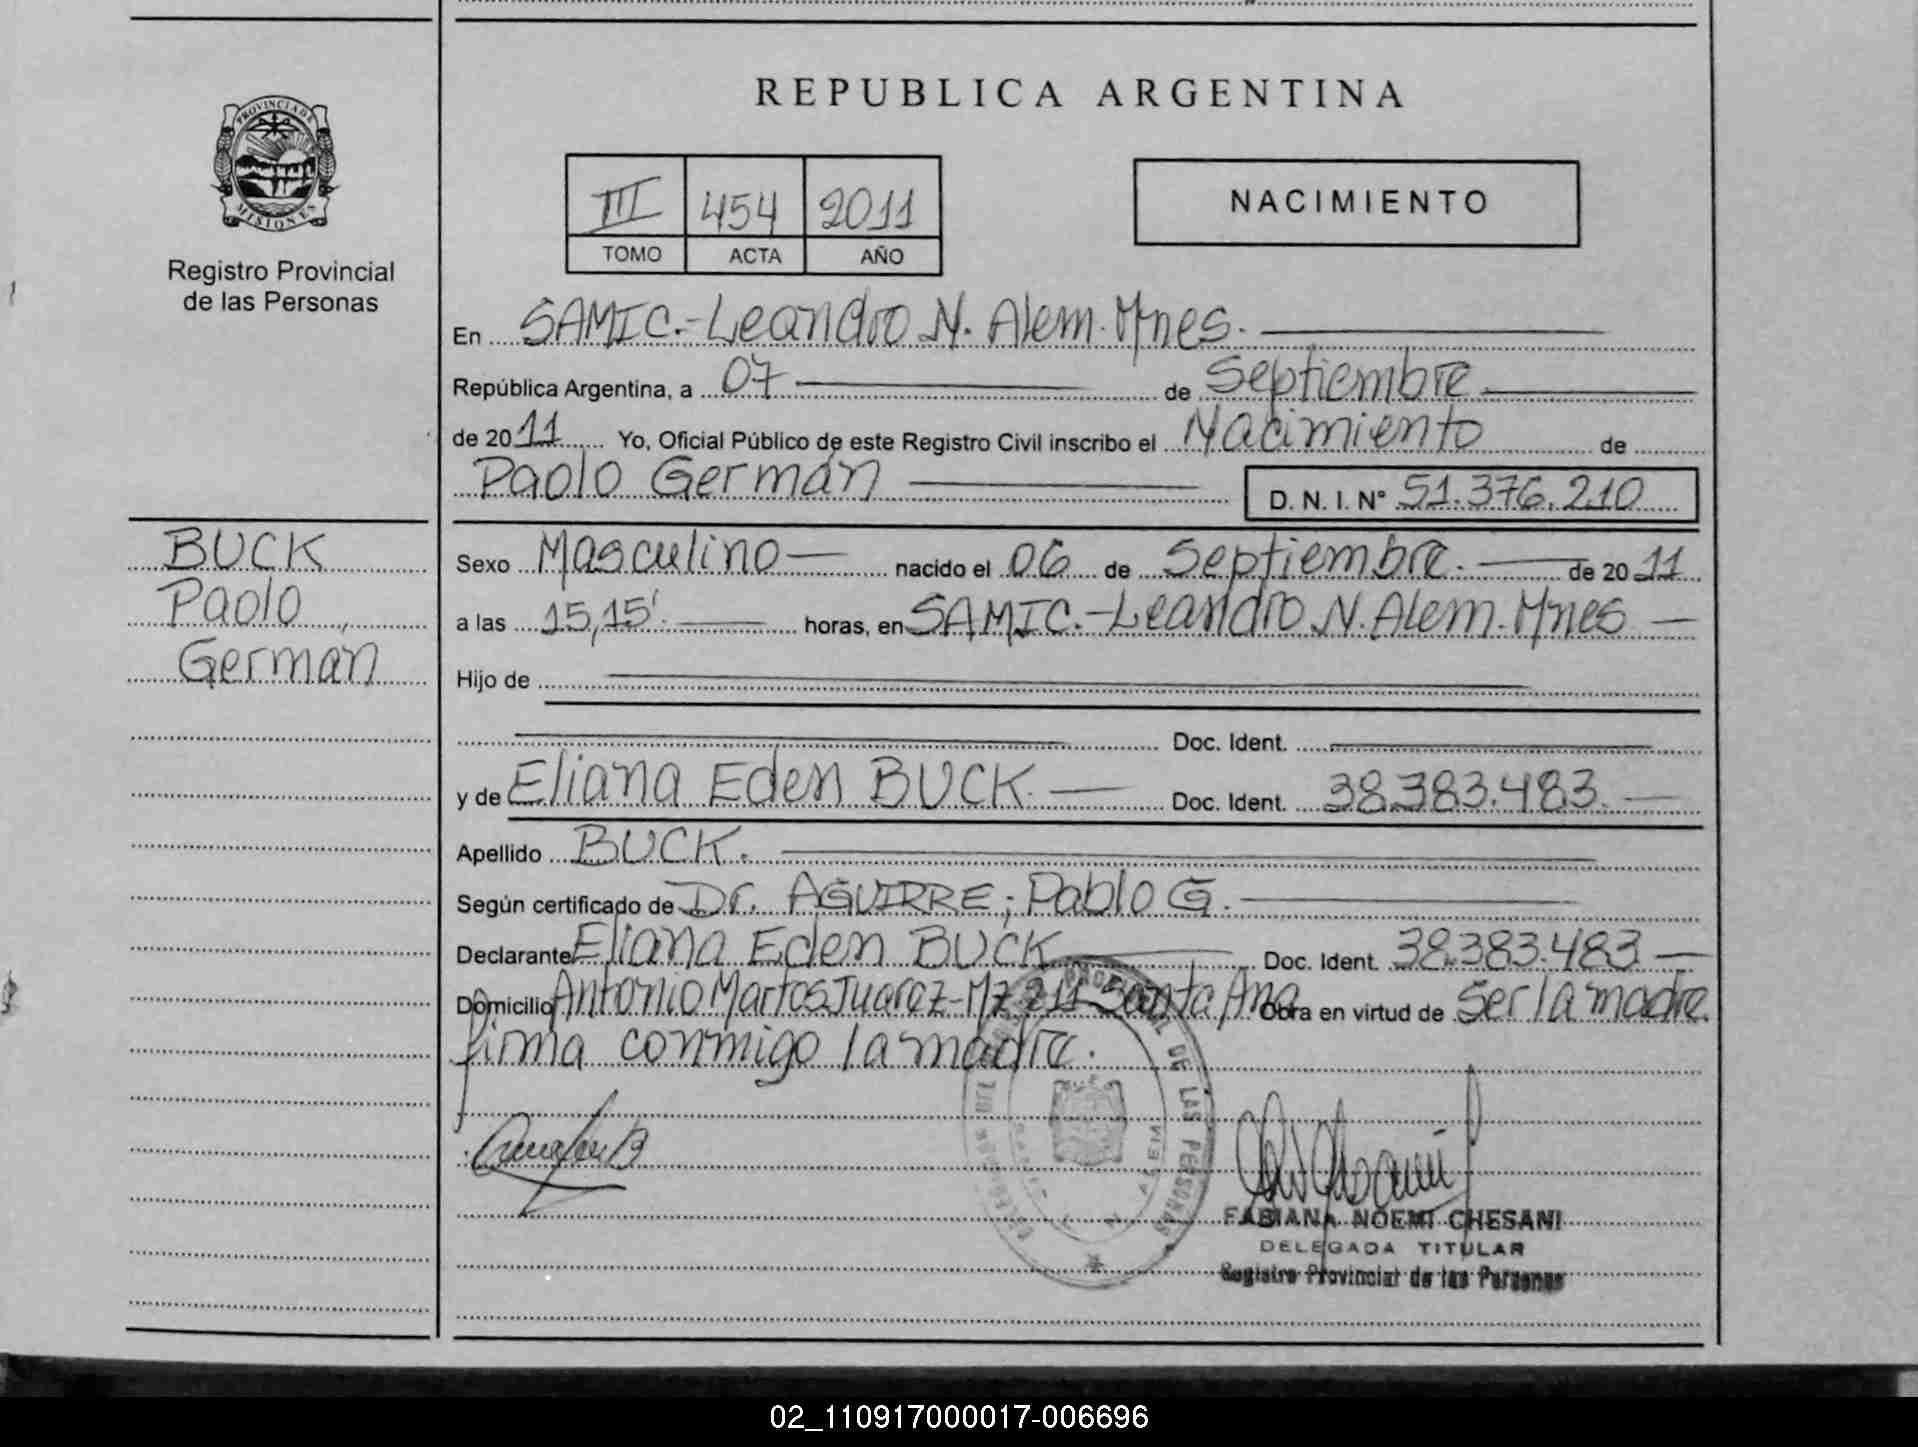 REPUBLICA ARGENTINA
PROVINCIA DE
MISIONES
Registro Provincial
de las Personas
III 454 2011
TOMO ACTA AÑO
NACIMIENTO
En SAMIC.-Leandro N. Alem. Mnes.
República Argentina, a 07 de Septiembre
de 2011 Yo, Oficial Público de este Registro Civil inscribo el Nacimiento de
Paolo Germán D. N. I. N° 51.376.210
BUCK
Paolo
Germán
Sexo Masculino nacido el 06 de Septiembre. de 2011
a las 15,15'. horas, en SAMIC.-Leandro N. Alem. Mnes
Hijo de
Doc. Ident.
y de Eliana Eden BUCK. Doc. Ident. 38.383.483.
Apellido BUCK.
Según certificado de Dr. AGUIRRE; Pablo G.
Declarante Eliana Eden BUCK Doc. Ident. 38.383.483
Domicilio Antonio Martos Juarez-Mz 211 Santa Ana Obra en virtud de Ser la madre.
firma conmigo la madre.
DE LAS PERSONAS
ALEM
FABIANA NOEMI CHESANI
DELEGADA TITULAR
Registro Provincial de las Personas
02_110917000017-006696